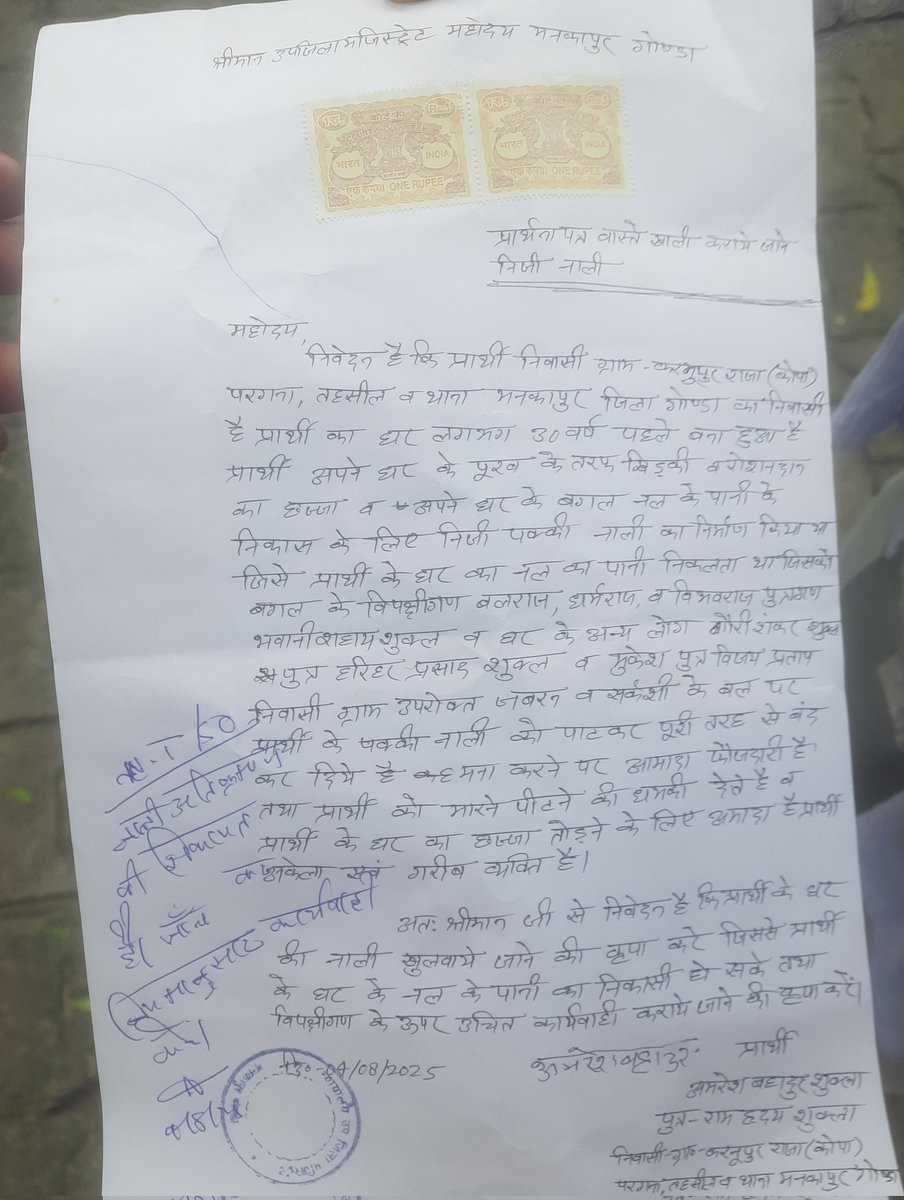 श्रीमान उपजिलामजिस्ट्रेट महोदय मनकापुर गोण्डा
1रु. कोर्ट फी Rs.1
भारत INDIA
एक रुपया ONE RUPEE
1रु. कोर्ट फी Rs.1
भारत INDIA
एक रुपया ONE RUPEE
प्रार्थना पत्र वास्ते खाली कराये जाने
निजी नाली
महोदय,
निवेदन है कि प्रार्थी निवासी ग्राम - राजा (कोपा)
परगना, तहसील व थाना मनकापुर जिला गोण्डा का निवासी
है प्रार्थी का घर लगभग 30 वर्ष पहले बना हुआ है
प्रार्थी अपने घर के पूरब के तरफ खिड़की व रोशनदान
का छज्जा व अपने घर के बगल नल के पानी के
निकास के लिए निजी पक्की नाली का निर्माण किया था
जिसे प्रार्थी के घर का नल का पानी निकलता था जिसको
बगल के विपक्षीगण बलराज, धर्मराज, व विभवराज पुत्रगण
भवानी शहाय शुक्ल व घर के अन्य लोग गौरी शंकर शुक्ल
पुत्र हरिहर प्रसाद शुक्ल व मुकेश पुत्र विजय प्रताप
निवासी ग्राम उपरोक्त जबरन व सर्कशी के बल पर
प्रार्थी के पक्की नाली को पाट कर पूरी तरह से बंद
कर दिये है मना करने पर आमादा फौजदारी है
तथा प्रार्थी को मारने पीटने की धमकी देते है व
प्रार्थी के घर का छज्जा तोड़ने के लिए अमादा है प्रार्थी
अकेला एवं गरीब व्यक्ति है।
अतः श्रीमान जी से निवेदन है कि प्रार्थी के घर
की नाली खुलवाये जाने की कृपा करे जिससे प्रार्थी
के घर के नल के पानी का निकासी हो सके तथा
विपक्षीगण के ऊपर उचित कार्यवाही कराये जाने की कृपा करें।
N.T
नाली
की शिकायत
है। जाँच
नियमानुसार कार्यवाही
करें।
दि०- 04/08/2025
अमरेश बहादुर प्रार्थी
अमरेश बहादुर शुक्ला
पुत्र - राम हृदय शुक्ला
निवासी - ग्रा० - राजा (कोपा)
परगना, तहसील व थाना मनकापुर गोण्डा